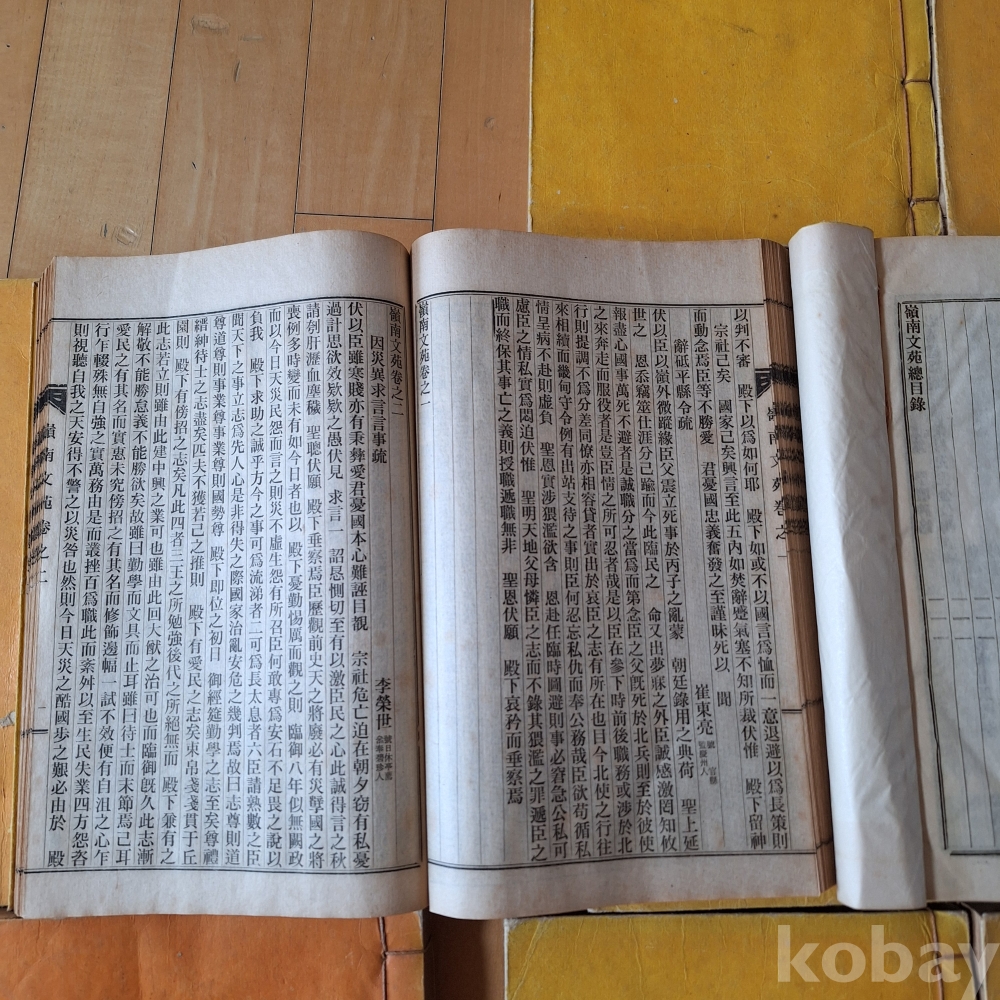 嶺南文苑總目錄
嶺南文苑卷之一
以判不審 殿下以爲如何耶 殿下如或不以國言爲恤而一意退避以爲長策則
宗社已矣 國家已矣興言至此五內如焚辭蹙氣塞不知所裁伏惟 殿下留神
而動念焉臣等不勝愛 君憂國忠義奮發之至謹昧死以 聞
辭砥平縣令疏 崔東亮 號 官縣監慶州人
伏以臣以嶺外微蹤緣臣父震立死事於丙子之亂蒙 朝廷錄用之典荷 聖上延
世之 恩忝竊筮仕涯分已踰而今此臨民之 命又出夢寐之外臣誠感激罔知攸
報盡心國事萬死不避者是誠職分之當爲而第念臣之父旣死於北兵則至於彼使
之來奔走而服役者是豈臣情之所可忍者哉是以臣在參下時前後職務或涉於北
行則提調不仁爲分差同僚亦相容貸者實出於哀臣之志有所在也目今北使之行往
來相續而畿甸守令例有出站支待之事則臣何忍忘私仇而奉公務哉臣欲苟循私
情呈病不赴則虛負 聖恩實涉猥濫欲含 恩赴任臨時圖避則事必窘急公私可
慮臣之情私實爲悶迫伏惟 聖明天地父母憐臣之志而不錄其猥濫之罪遞臣之
職而終保其事亡之義則授職遞職無非 聖恩伏願 殿下哀矜而垂察焉
嶺南文苑卷之一
嶺南文苑卷之二
因災異求言言事疏 李榮世
伏以臣雖寒賤亦有秉彝愛君憂國本心難誣目覩 宗社危亡迫在朝夕竊有私憂
過計思欲效欵欵之愚伏見 求言 詔恳惻切至有以激臣民之心此誠得言之秋
請刳肝瀝血塵穢 聖聰伏願 殿下垂察焉臣歷觀前史天之將廢必有災孼國之將
喪例多時變而未有如今日者也以 殿下憂勤惕厲而觀之則 臨御八年似無闕政
而以今日天災民怨而言之則災不虛生怨有所召臣何敢專爲安石不足畏之說以
負我 殿下求助之誠乎方今之事可爲流涕者二可爲長太息者六臣請熟數之臣
聞天下之事立志爲先人心是非得失之際國家治亂安危之幾判焉故曰志尊則道
尊道尊則事業尊事業尊則國勢尊 殿下即位之初日 御經筵勤學之志至矣尊禮
縉紳待士之志盡矣匹夫不獲若己之推則 殿下有愛民之志矣東帛戔戔貫于丘
園則 殿下有傍招之志矣凡此四者三王之所勉強後代之所絕無而 殿下兼有之
此志若立則雖由此建中興之業可也雖由此回大猷之治可也而臨御旣久此志漸
解敬不能勝怠義不能勝欲故雖曰勤學而文具而止耳雖曰待士而末節焉已耳
愛民之有其名而實惠未究傍招之有其名而修飾邊幅一試不效便有自沮之心乍
行乍輟殊無自強之實萬務由是而叢挫百爲職此而紊舛以至生民失業四方怨咨
則視聽自我之天安得不警之以災咎也然則今日天災之酷國步之艱必由於 殿
嶺南文苑卷之二
二
kobay